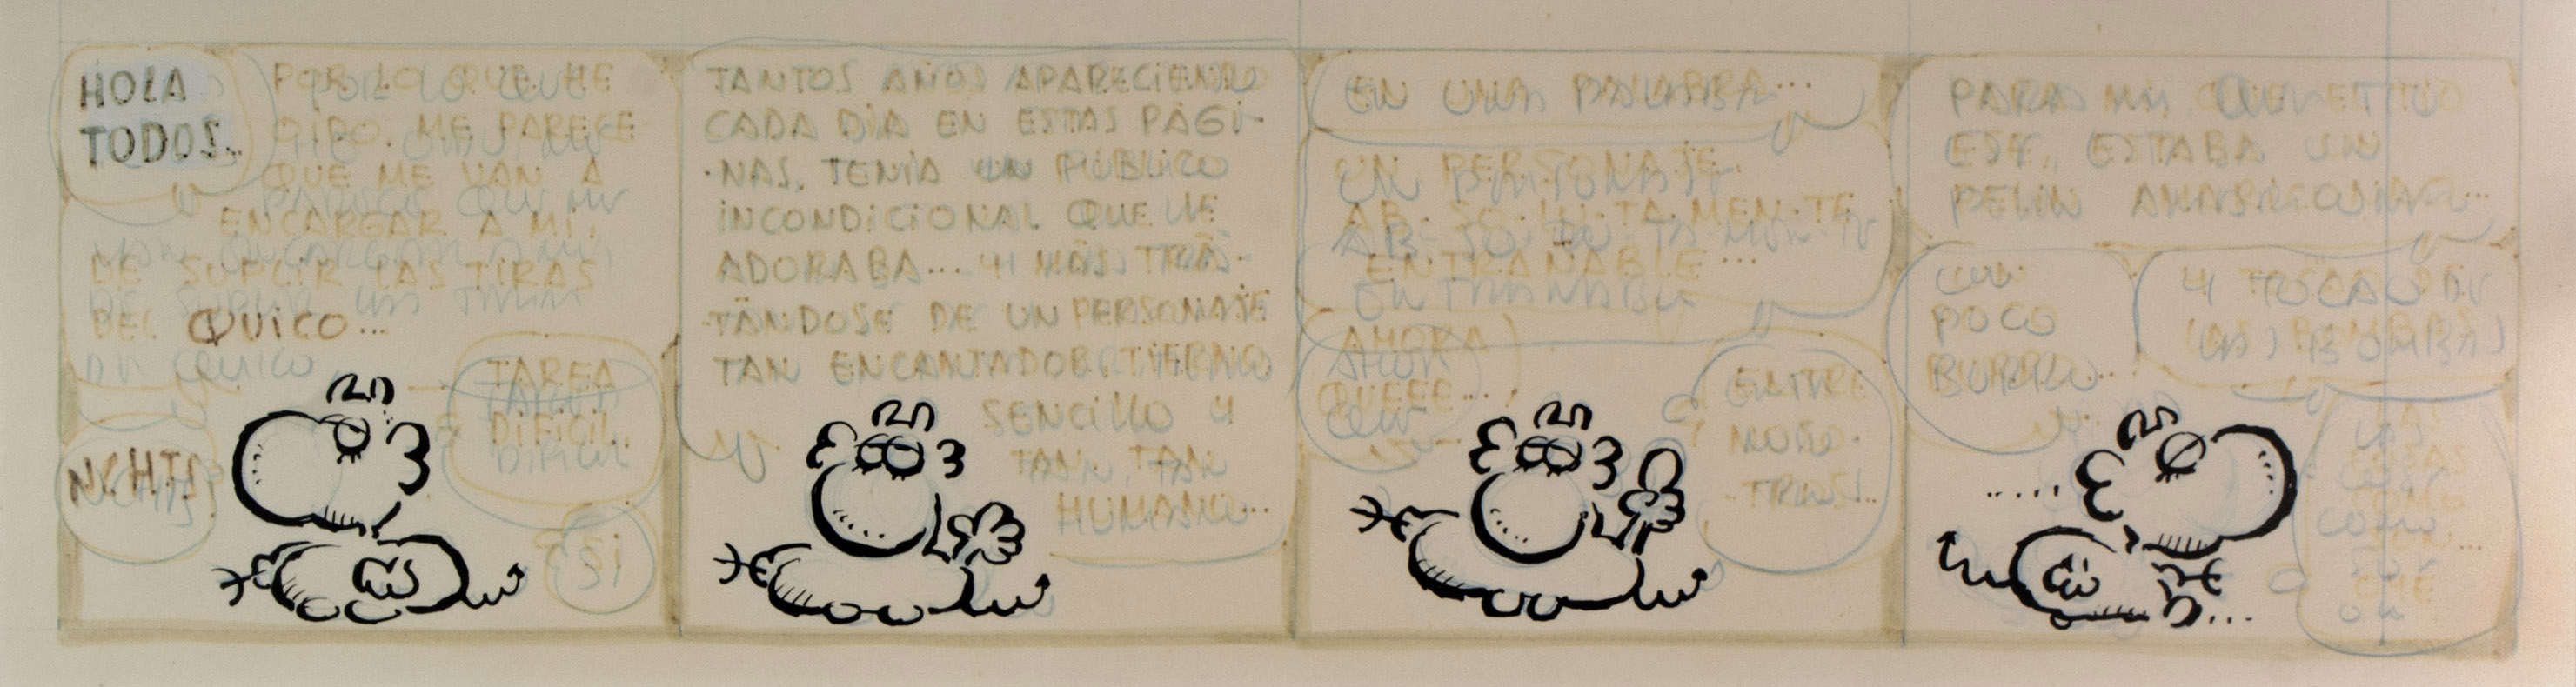 HOLA
TODOS...
POR LO QUE HE
OIDO, ME PARECE
QUE ME VAN A
ENCARGAR A MI,
DE SUPLIR LAS TIRAS
DEL QUICO...
NCHTS!
TAREA
DIFICIL.
SI
TANTOS AÑOS APARECIENDO
CADA DIA EN ESTAS PAGI-
-NAS. TENIA UN PUBLICO
INCONDICIONAL QUE LE
ADORABA... Y MAS TRA-
TANDOSE DE UN PERSONAJE
TAN ENCANTADOR. TIERNO
SENCILLO Y
TAN, TAN
HUMANO...
EN UNA PALABRA...
UN PERSONAJE.
AB-SO-LU-TA-MEN-TE
ENTRAÑABLE...
AHORA
QUEEE...
ENTRE
NOSO-
-TROS...
PARA MI QUE EL TIO
ESE, ESTABA UN
PELIN AMARICONAO...
UN
POCO
BURRO...
Y TOCAO DE
LAS BOMBAS
LAS
COSAS
COMO
SON...